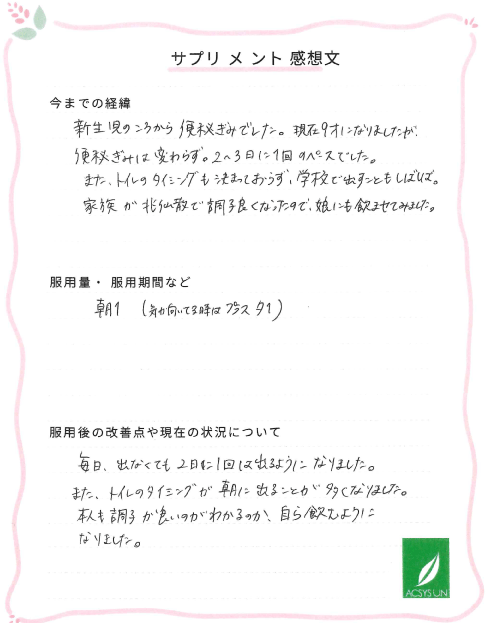 サプリメント感想文
今までの経緯
新生児のころから便秘ぎみでした。現在9才になりましたが、
便秘ぎみは変わらず。2〜3日に1回のペースでした。
また、トイレのタイミングも決まっておらず、学校で出すこともしばしば。
家族が兆仙散で調子良くなったので、娘にも飲ませてみました。
服用量・服用期間など
朝1 (気が向いてる時は プラス夕1)
服用後の改善点や現在の状況について
毎日、出なくても2日に1回は出るようになりました。
また、トイレのタイミングが朝に出ることが多くなりました。
本人も調子が良いのがわかるのか、自ら飲むように
なりました。
ACSYSUN